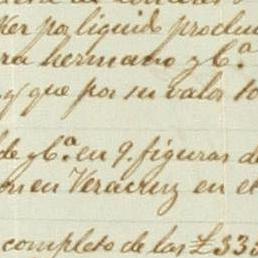 Ker por liquido produc
ra hermano y C.ª
y que por su valor to
de y C.ª en 9. figuras d
en Veracruz en et
completo de las £33